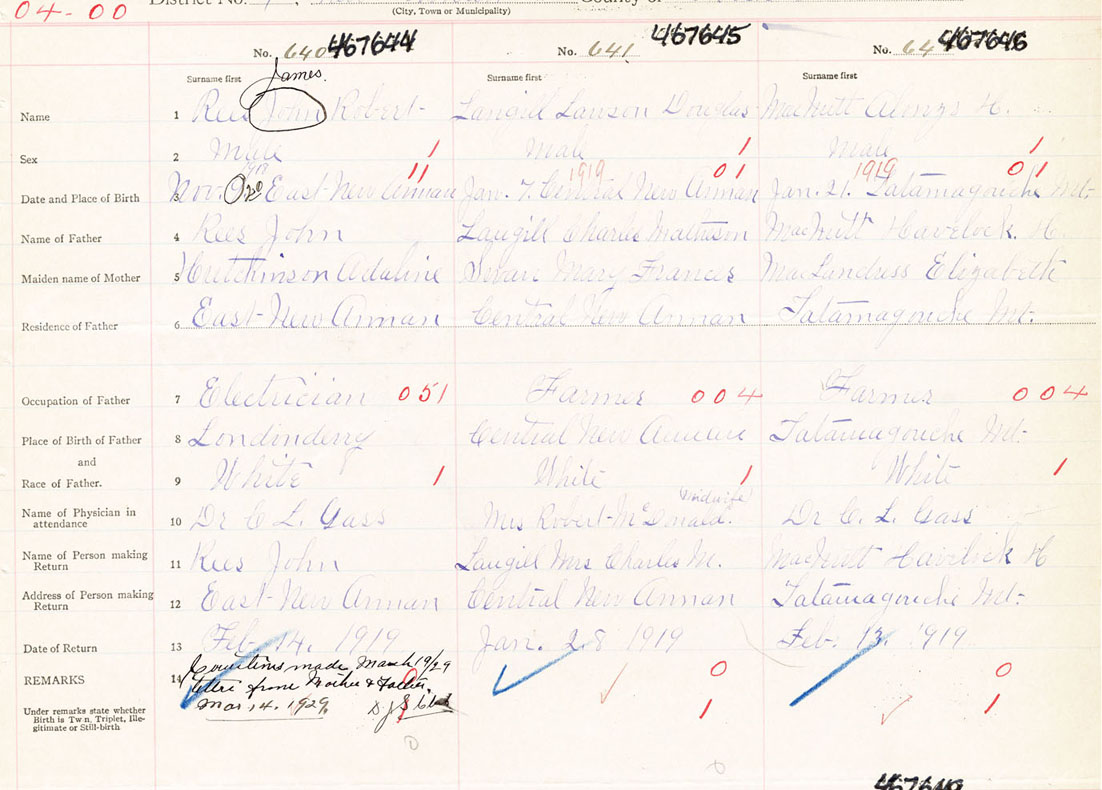 04-00 District No. County of
(City, Town or Municipality)
No. 640 467644 No. 641 467645 No. 64 467646
James.
Surname first Surname first Surname first
Name 1 Rees John Robert Langill Lawson Douglas MacNutt H.
Sex 2 Male 1 Male 1 Male 1
1918 11 1919 01 1919 01
Date and Place of Birth 3 Nov. East New Annan Jan. 7. Central New Annan Jan. 21. Tatamagouche Mt.
Name of Father 4 Rees John Langill Charles Mathison MacNutt Havelock. H.
Maiden name of Mother 5 Hutchinson Adaline Swan Mary Frances Elizabeth
Residence of Father 6 East New Annan Central New Annan Tatamagouche Mt.
Occupation of Father 7 Electrician 051 Farmer 004 Farmer 004
Place of Birth of Father 8 Londinderry Central New Annan Tatamagouche Mt.
and
Race of Father. 9 White 1 White 1 White 1
(midwife)
Name of Physician in attendance 10 Dr C L. Gass Mrs Robert McDonald. Dr C. L. Gass
Name of Person making Return 11 Rees John Langill Mrs Charles M. MacNutt Havelock H
Address of Person making Return 12 East New Annan Central New Annan Tatamagouche Mt.
Date of Return 13 Feb. 14. 1919 Jan. 28 1919 Feb. 13. 1919
REMARKS 14 Corrections made March 19/29 0 0
letter from Mother & Father.
Mar 14. 1929
Under remarks state whether Birth is Twin, Triplet, Ille-
gitimate or Still-birth 1 1